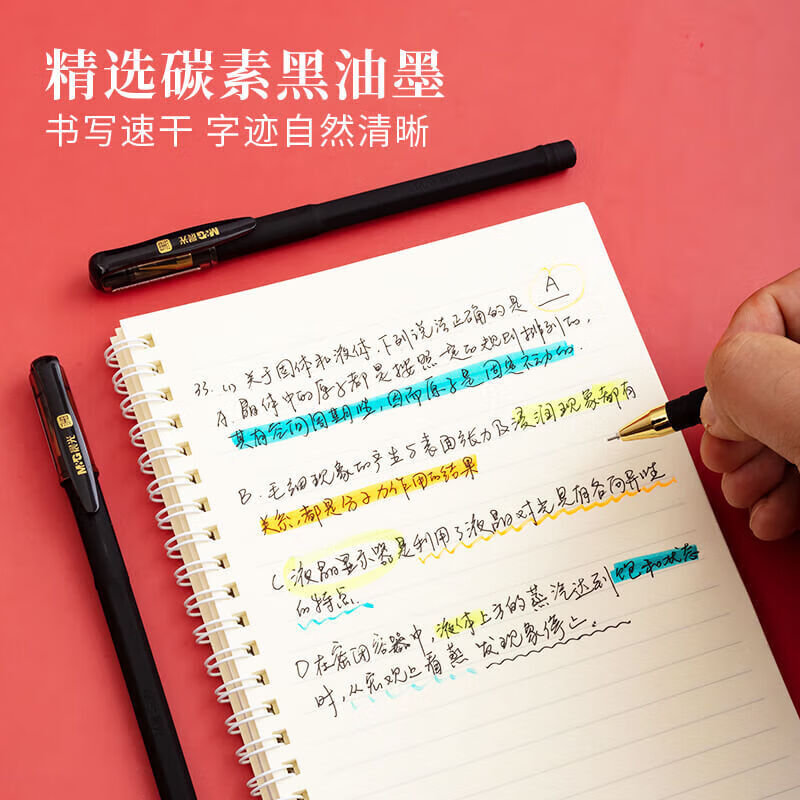 精选碳素黑油墨
书写速干 字迹自然清晰
M&G晨光
A
33. (1) 关于固体和液体.下列说法正确的是
A. 晶体中的原子都是按照一定的规则排列的,
其有空间周期性,因而原子是固定不动的.
B. 毛细现象的产生与表面张力及浸润现象都有
关系,都是分子力作用的结果
M&G晨光
C. 液晶显示器是利用了液晶对光具有各向异性
的特点.
D 在密闭容器中,液体上方的蒸汽达到饱和状态
时,从宏观上看蒸发现象停止.